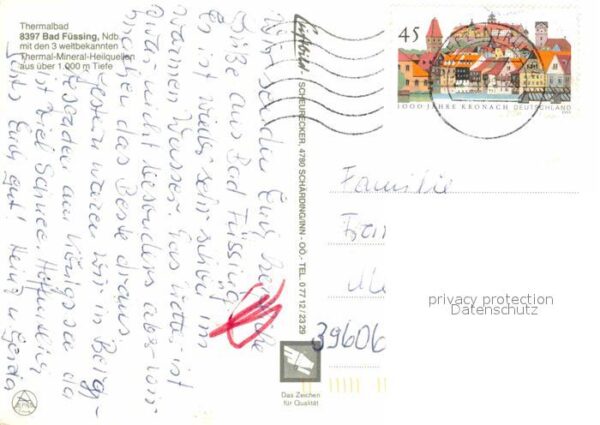 Thermalbad
8397 Bad Füssing, Ndb.
mit den 3 weltbekannten
Thermal-Mineral-Heilquellen
aus über 1.000 m Tiefe
Wir senden Euch herzliche
Grüße aus Bad Füssing.
Es ist wieder sehr schön im
warmen Wasser. Das Wetter ist
zwar nicht besonders aber wir
machen das Beste draus.
Gestern waren wir in Berch-
tesgaden am Königssee da
ist viel Schnee. Hoffentlich
geht's Euch gut! Heinz u Gerda
SCHEURECKER, 4780 SCHÄRDING/INN - OÖ. - TEL. 0 77 12 / 23 29
45
1000 JAHRE KRONACH DEUTSCHLAND
Familie
39606
privacy protection
Datenschutz
Das Zeichen
für Qualität